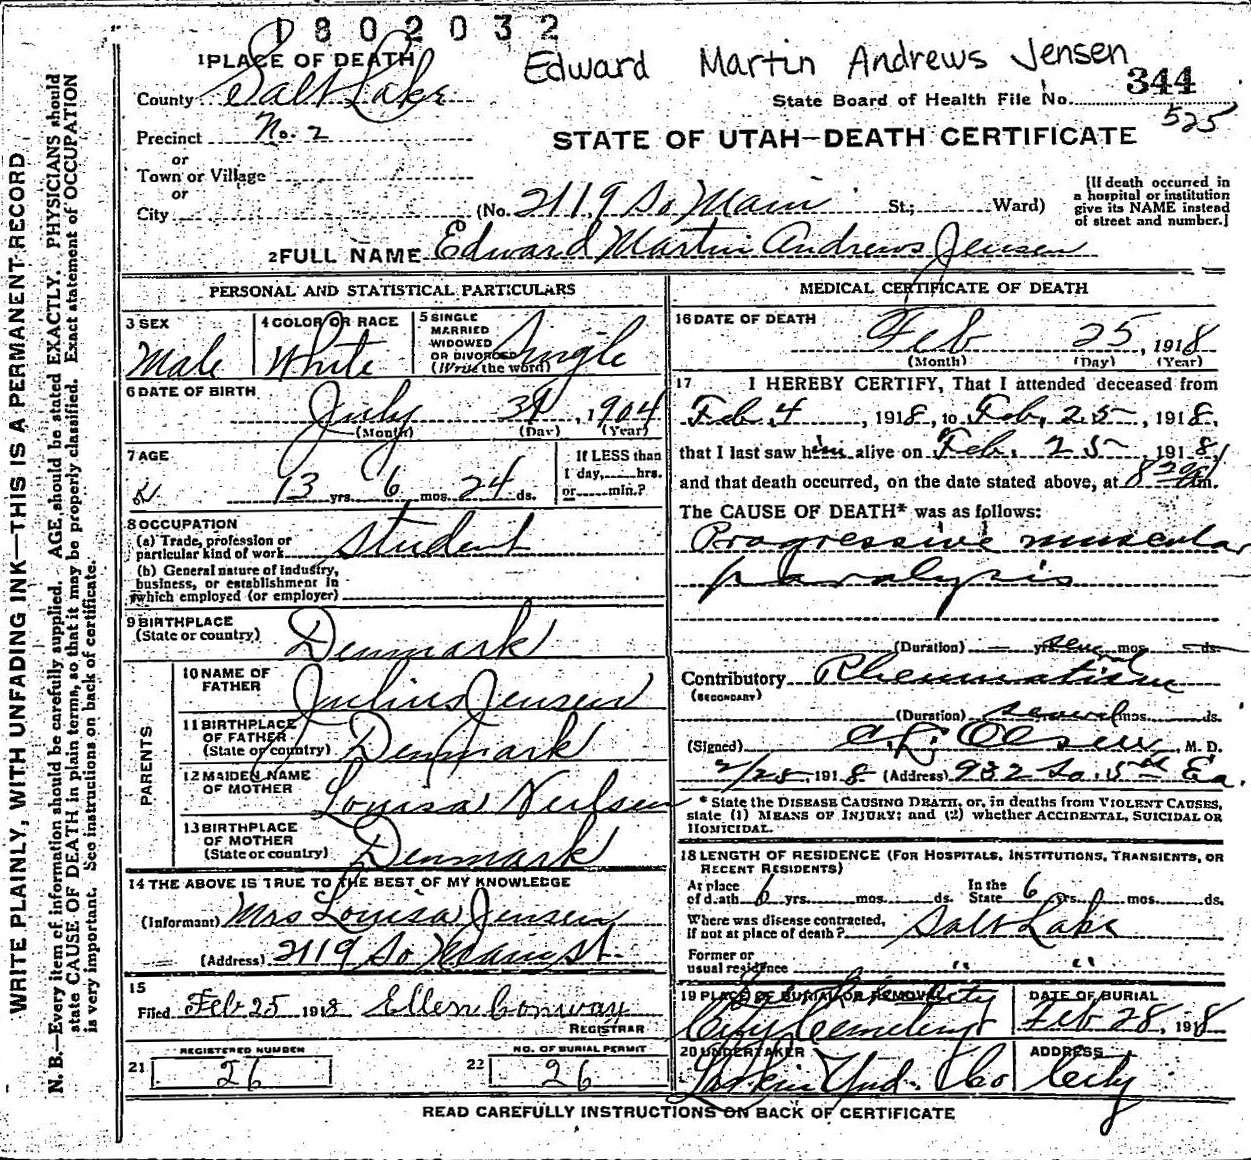 1802032
Edward Martin Andrews Jensen
1 PLACE OF DEATH
County Salt Lake
State Board of Health File No. 344
525
Precinct No. 2
or
STATE OF UTAH—DEATH CERTIFICATE
Town or Village
or
City (No. 2119 So Main St.; Ward)
[If death occurred in a hospital or institution give its NAME instead of street and number.]
2 FULL NAME Edward Martin Andrews Jensen
PERSONAL AND STATISTICAL PARTICULARS
3 SEX Male
4 COLOR OR RACE White
5 SINGLE MARRIED WIDOWED OR DIVORCED (Write the word) Single
6 DATE OF BIRTH
July 31, 1904
(Month) (Day) (Year)
7 AGE
13 yrs. 6 mos. 24 ds.
If LESS than 1 day, hrs. or min.?
8 OCCUPATION
(a) Trade, profession or particular kind of work Student
(b) General nature of industry, business, or establishment in which employed (or employer)
9 BIRTHPLACE (State or country) Denmark
PARENTS
10 NAME OF FATHER Julius Jensen
11 BIRTHPLACE OF FATHER (State or country) Denmark
12 MAIDEN NAME OF MOTHER Louisa Neilsen
13 BIRTHPLACE OF MOTHER (State or country) Denmark
14 THE ABOVE IS TRUE TO THE BEST OF MY KNOWLEDGE
(Informant) Mrs Louisa Jensen
(Address) 2119 So Main st.
15
Filed Feb 25 1918 Ellen Conway
REGISTRAR
21 REGISTERED NUMBER 26
22 NO. OF BURIAL PERMIT 26
MEDICAL CERTIFICATE OF DEATH
16 DATE OF DEATH
Feb 25, 1918
(Month) (Day) (Year)
17 I HEREBY CERTIFY, That I attended deceased from
Feb. 4, 1918, to Feb. 25, 1918,
that I last saw him alive on Feb. 25, 1918,
and that death occurred, on the date stated above, at m.
The CAUSE OF DEATH* was as follows:
Progressive muscular
paralysis
(Duration) yrs. several mos. ds.
Contributory Rheumatism
(SECONDARY)
(Duration) several mos. ds.
(Signed) Olsen, M. D.
2/25 1918 (Address) 932 So. 5th Ea.
* State the DISEASE CAUSING DEATH, or, in deaths from VIOLENT CAUSES,
state (1) MEANS OF INJURY; and (2) whether ACCIDENTAL, SUICIDAL OR
HOMICIDAL.
18 LENGTH OF RESIDENCE (FOR HOSPITALS, INSTITUTIONS, TRANSIENTS, OR
RECENT RESIDENTS)
At place of death 6 yrs. mos. ds. In the State 6 yrs. mos. ds.
Where was disease contracted, if not at place of death? Salt Lake
Former or usual residence " "
19 PLACE OF BURIAL OR REMOVAL City
City Cemetery
DATE OF BURIAL Feb 28, 1918
20 UNDERTAKER Larkin Und. Co
ADDRESS City
READ CAREFULLY INSTRUCTIONS ON BACK OF CERTIFICATE
WRITE PLAINLY, WITH UNFADING INK—THIS IS A PERMANENT RECORD
N. B.—Every item of information should be carefully supplied. AGE should be stated EXACTLY. PHYSICIANS should
state CAUSE OF DEATH in plain terms, so that it may be properly classified. Exact statement of OCCUPATION
is very important. See instructions on back of certificate.